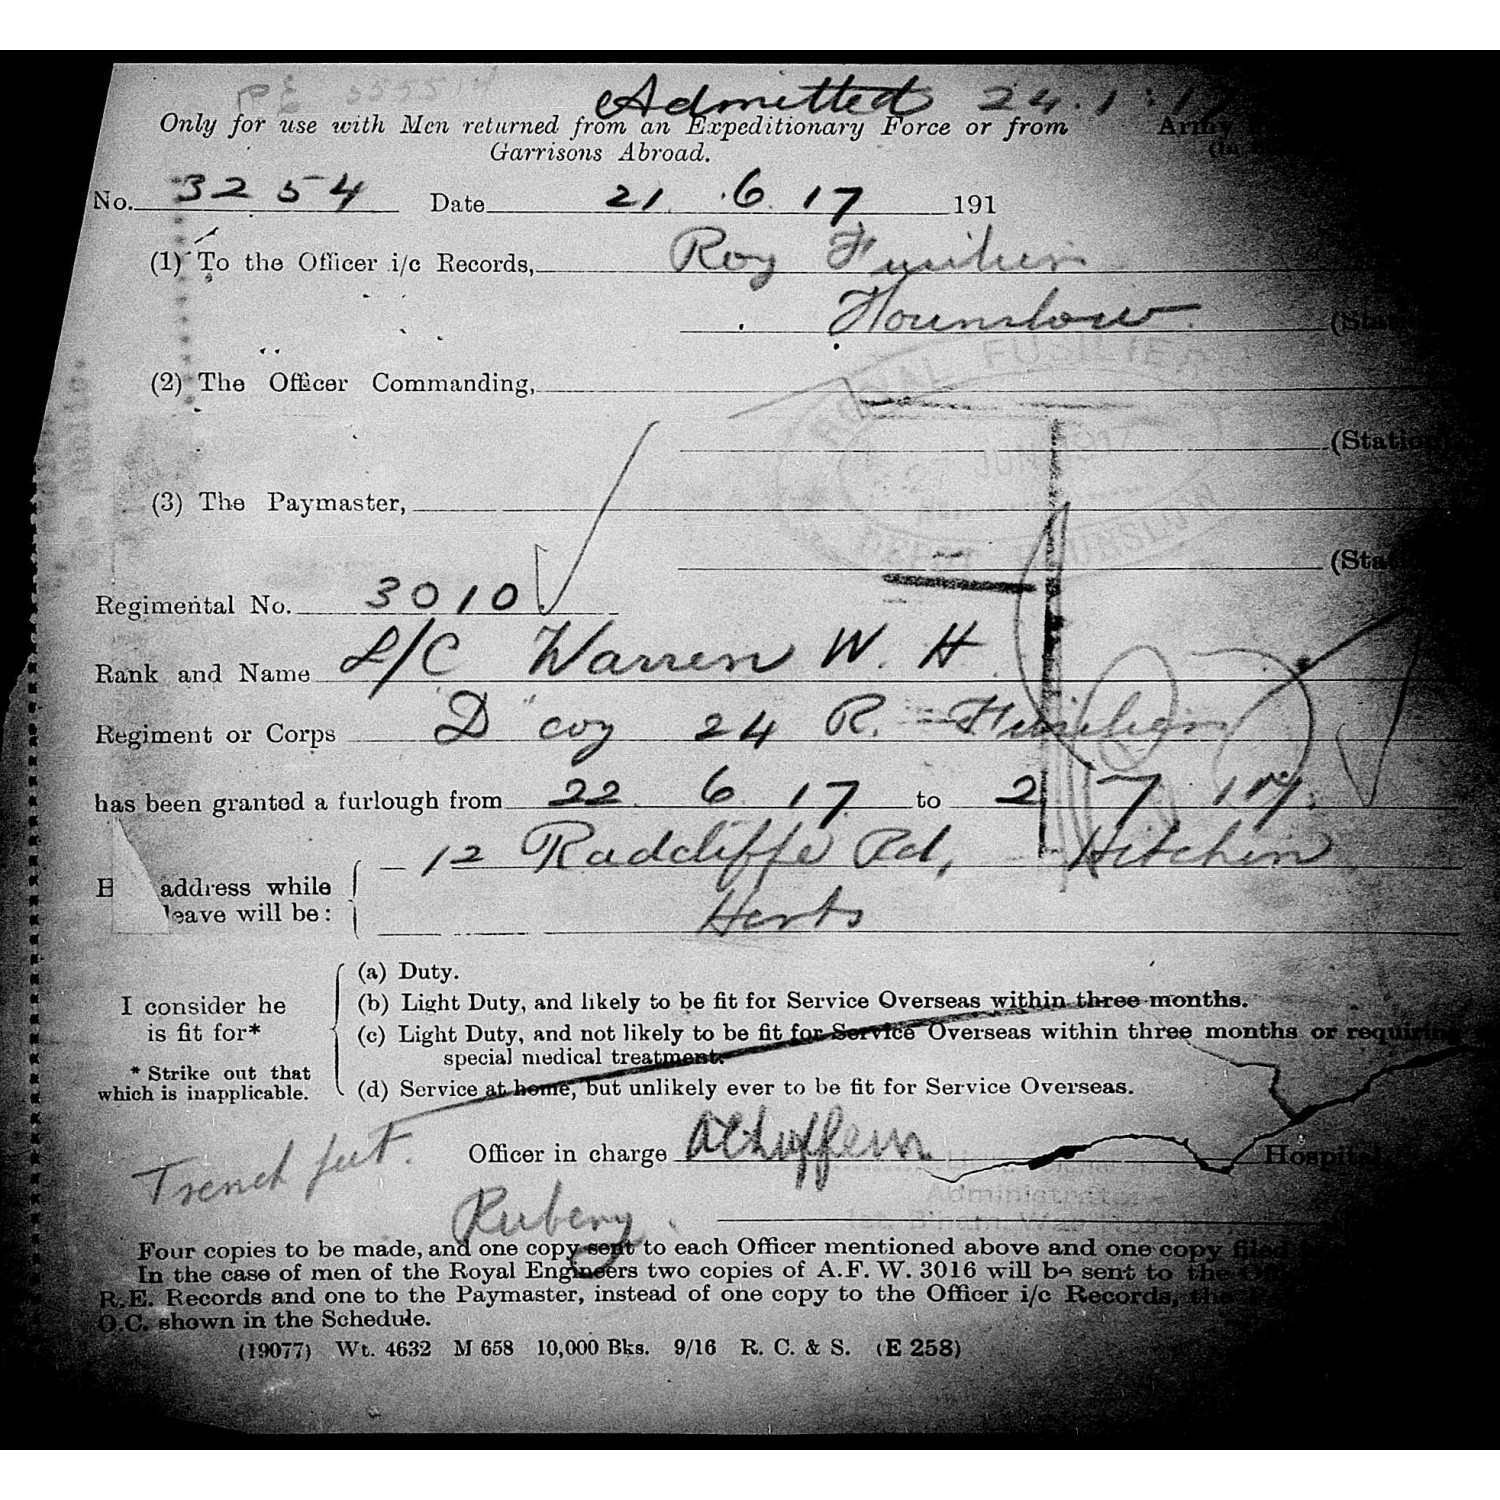 Admitted 24.1.17
Only for use with Men returned from an Expeditionary Force or from
Garrisons Abroad.
Army
No. 3254 Date 21.6.17 191
(1) To the Officer i/c Records, Roy Fusiliers
Hounslow
(2) The Officer Commanding,
ROYAL FUSILIERS
27 JUN 1917
(3) The Paymaster,
Regimental No. 3010
Rank and Name L/C Warren W. H
Regiment or Corps "D" coy 24 R. Fusiliers
has been granted a furlough from 22 6 17 to 2 7 17.
12 Radcliffe Rd, Hitchin
address while
leave will be:
Herts
I consider he
is fit for*
* Strike out that
which is inapplicable.
(a) Duty.
(b) Light Duty, and likely to be fit for Service Overseas within three months.
(c) Light Duty, and not likely to be fit for Service Overseas within three months or requiring
special medical treatment.
(d) Service at home, but unlikely ever to be fit for Service Overseas.
Trench feet.
Officer in charge Hospital
Administrator
Rubery
Four copies to be made, and one copy sent to each Officer mentioned above and one copy filed
In the case of men of the Royal Engineers two copies of A.F. W. 3016 will be sent to the
R.E. Records and one to the Paymaster, instead of one copy to the Officer i/c Records, the
O.C. shown in the Schedule.
(19077) Wt. 4632 M 658 10,000 Bks. 9/16 R. C. & S. (E 258)